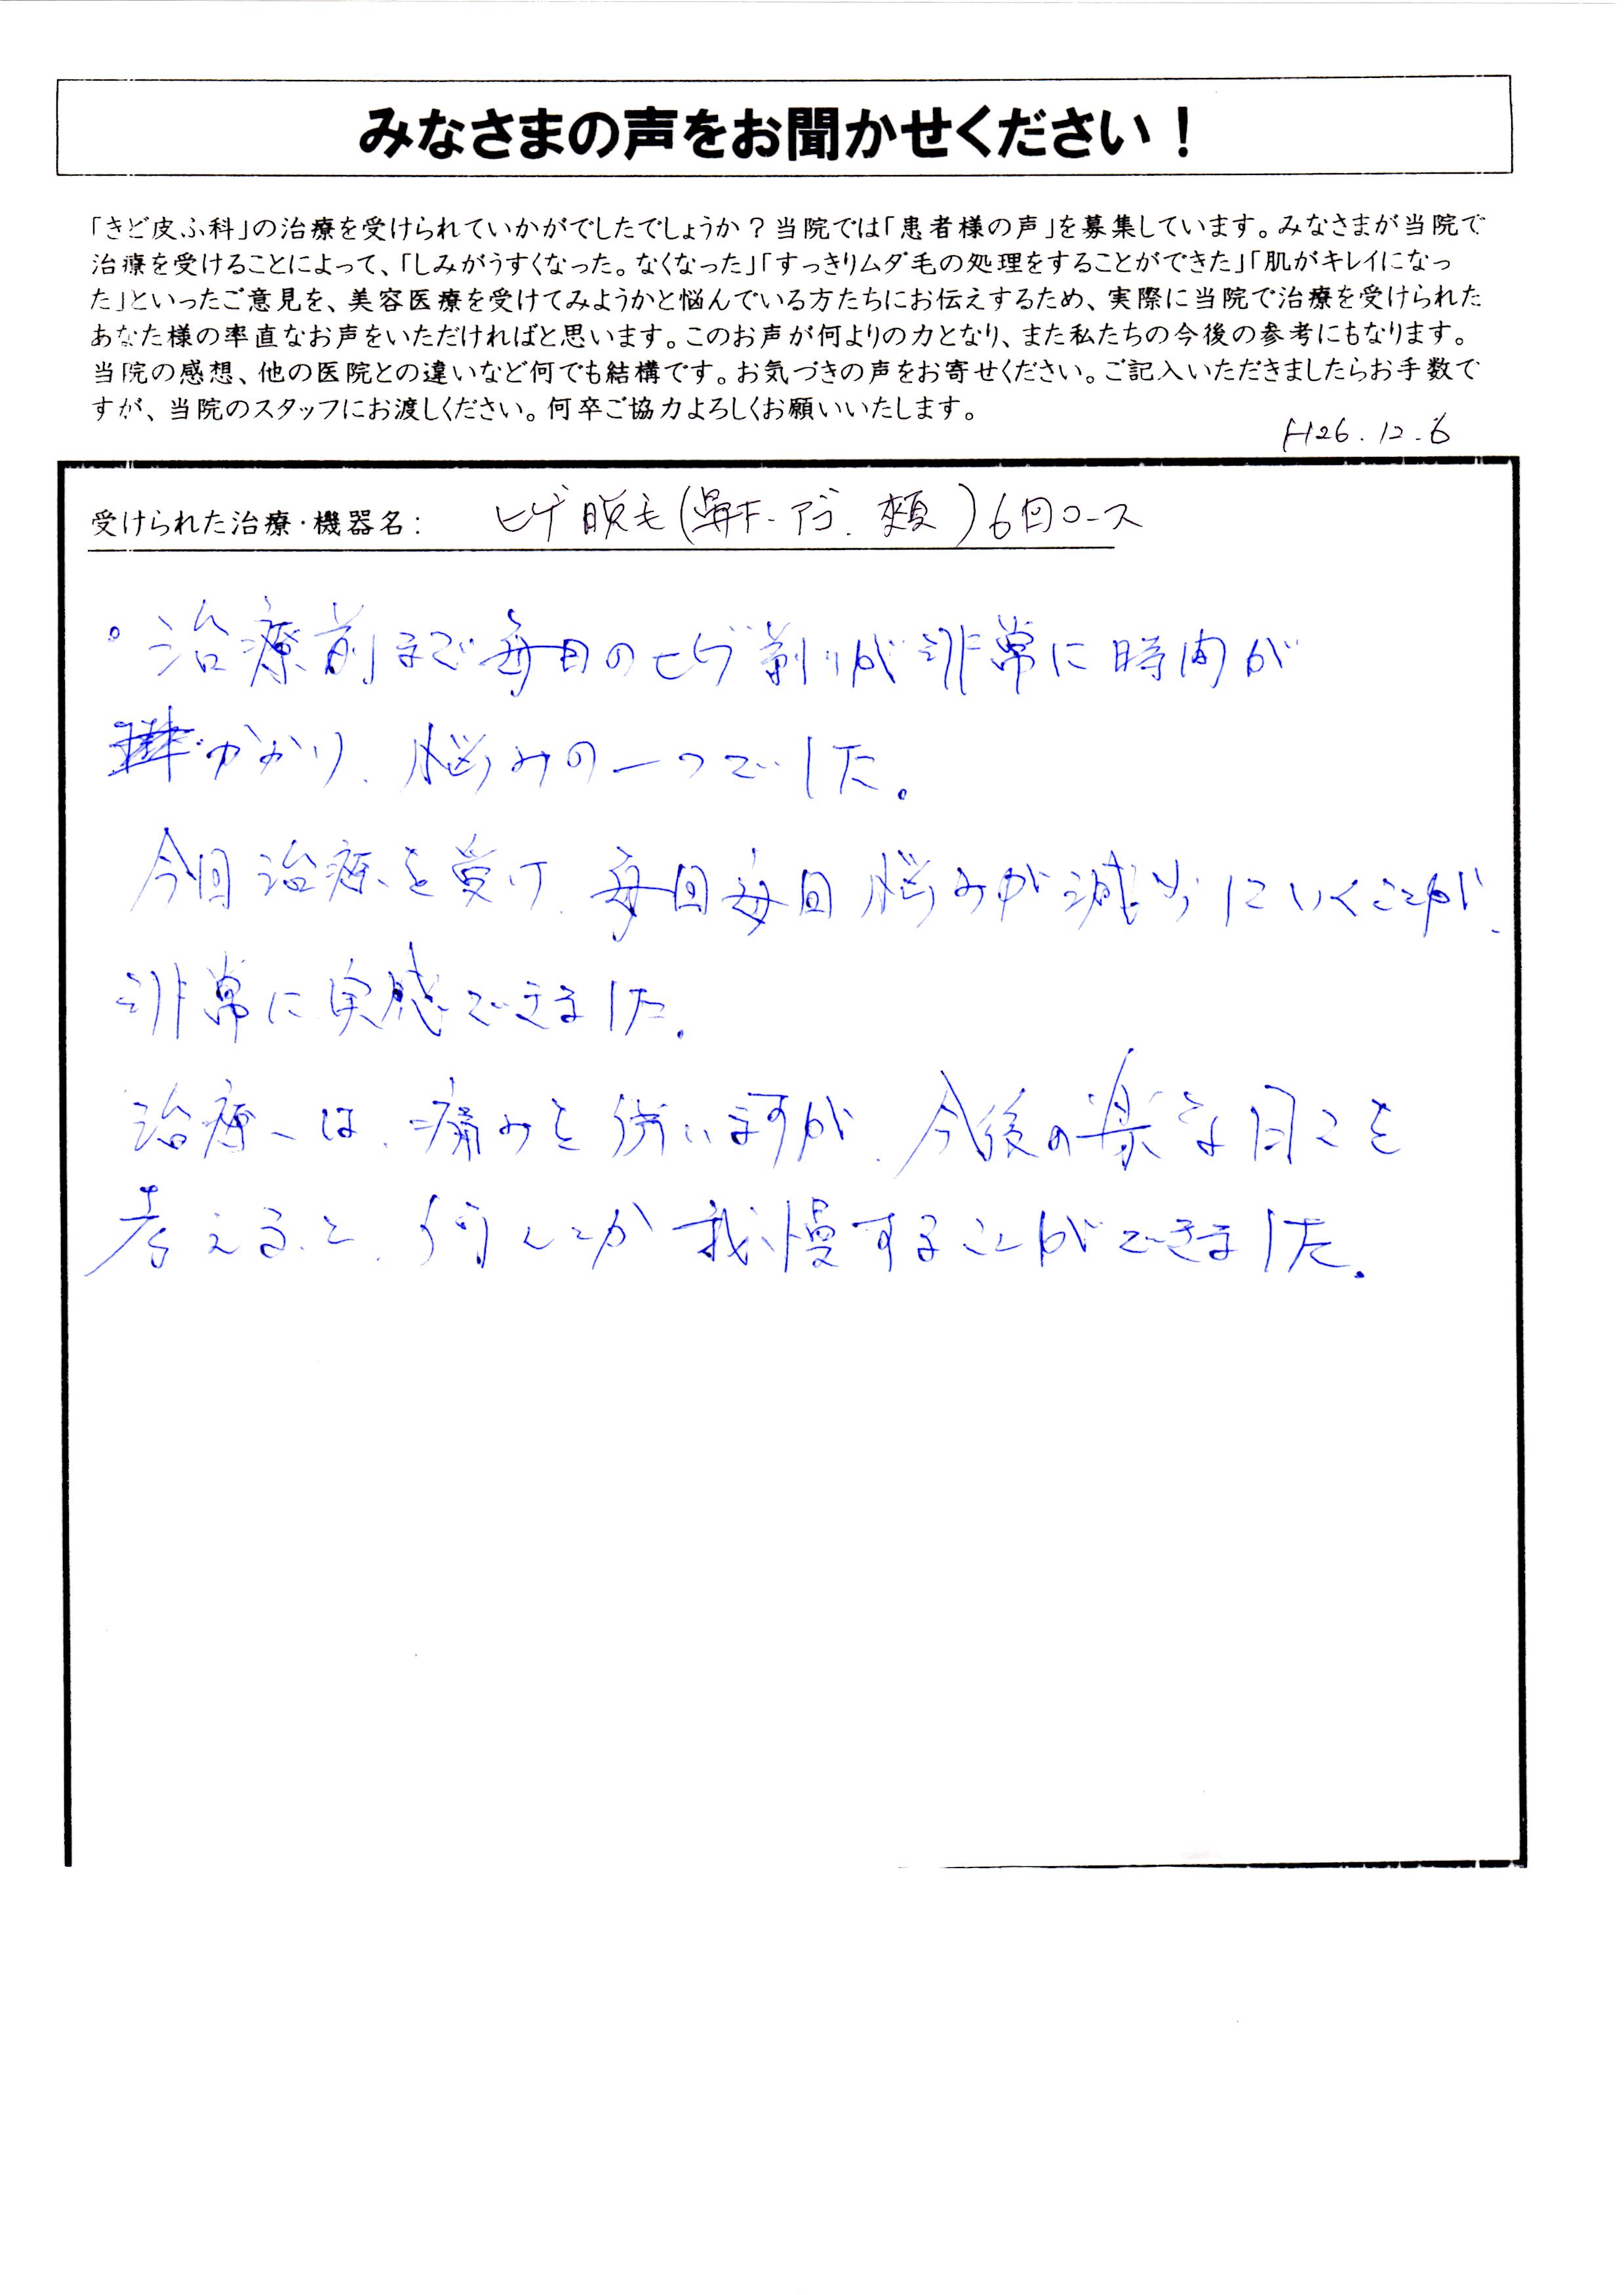 みなさまの声をお聞かせください！
「きど皮ふ科」の治療を受けられていかがでしたでしょうか？当院では「患者様の声」を募集しています。みなさまが当院で
治療を受けることによって、「しみがうすくなった。なくなった」「すっきりムダ毛の処理をすることができた」「肌がキレイになっ
た」といったご意見を、美容医療を受けてみようかと悩んでいる方たちにお伝えするため、実際に当院で治療を受けられた
あなた様の率直なお声をいただければと思います。このお声が何よりの力となり、また私たちの今後の参考にもなります。
当院の感想、他の医院との違いなど何でも結構です。お気づきの声をお寄せください。ご記入いただきましたらお手数で
すが、当院のスタッフにお渡しください。何卒ご協力よろしくお願いいたします。
H26.12.6
受けられた治療・機器名： ヒゲ脱毛(鼻下.アゴ.頬)6回コース
。治療前まで毎日のヒゲ剃りが非常に時間が
かかり、悩みの一つでした。
今回治療を受け、毎回毎回悩みが減少にいくことが、
非常に実感できました。
治療には、痛みを伴いますが、今後の楽な日々を
考えると、何とか我慢することができました。